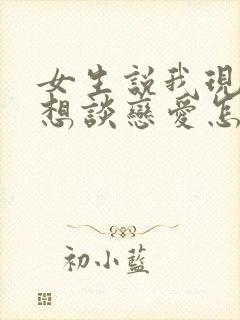 女生説我現
想談戀愛怎
初小藍